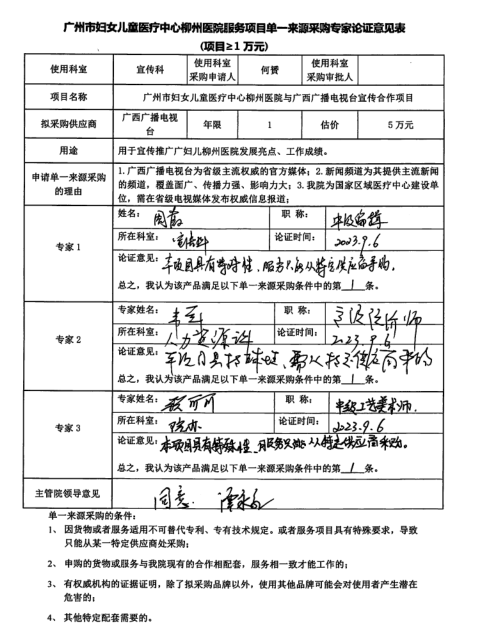 广州市妇女儿童医疗中心柳州医院服务项目单一来源采购专家论证意见表
(项目≥1 万元)
使用科室 宣传科 使用科室采购申请人 何赟 使用科室采购审批人
项目名称 广州市妇女儿童医疗中心柳州医院与广西广播电视台宣传合作项目
拟采购供应商 广西广播电视台 年限 1 估价 5 万元
用途 用于宣传推广广妇儿柳州医院发展亮点、工作成绩。
申请单一来源采购的理由
1.广西广播电视台为省级主流权威的官方媒体；2.新闻频道为其提供主流新闻
的频道，覆盖面广、传播力强、影响力大；3.我院为国家区域医疗中心建设单
位，需在省级电视媒体发布权威信息报道；
专家 1
姓名： 职 称：
所在科室：宣传科 论证时间：2023.9.6
论证意见：本项目具有特殊性，服务只能从特定供应商采购。
总之，我认为该产品满足以下单一来源采购条件中的第 1 条。
专家 2
专家姓名： 职 称：
所在科室：人力资源科 论证时间：2023.9.6
论证意见：本项目具特殊性，需从特定供应商采购
总之，我认为该产品满足以下单一来源采购条件中的第 1 条。
专家 3
专家姓名： 职 称：中级工艺美术师
所在科室：院办 论证时间：2023.9.6
论证意见：本项目具有特殊性，服务只能从特定供应商采购。
总之，我认为该产品满足以下单一来源采购条件中的第 1 条。
主管院领导意见 同意.
单一来源采购的条件：
1、 因货物或者服务适用不可替代专利、专有技术规定。或者服务项目具有特殊要求，导致
只能从某一特定供应商处采购；
2、 申购的货物或服务与我院现有的合作相配套，服务相一致才能工作的；
3、 有权威机构的证据证明，除了拟采购品牌以外，使用其他品牌可能会对使用者产生潜在
危害的；
4、 其他特定配套需要的。